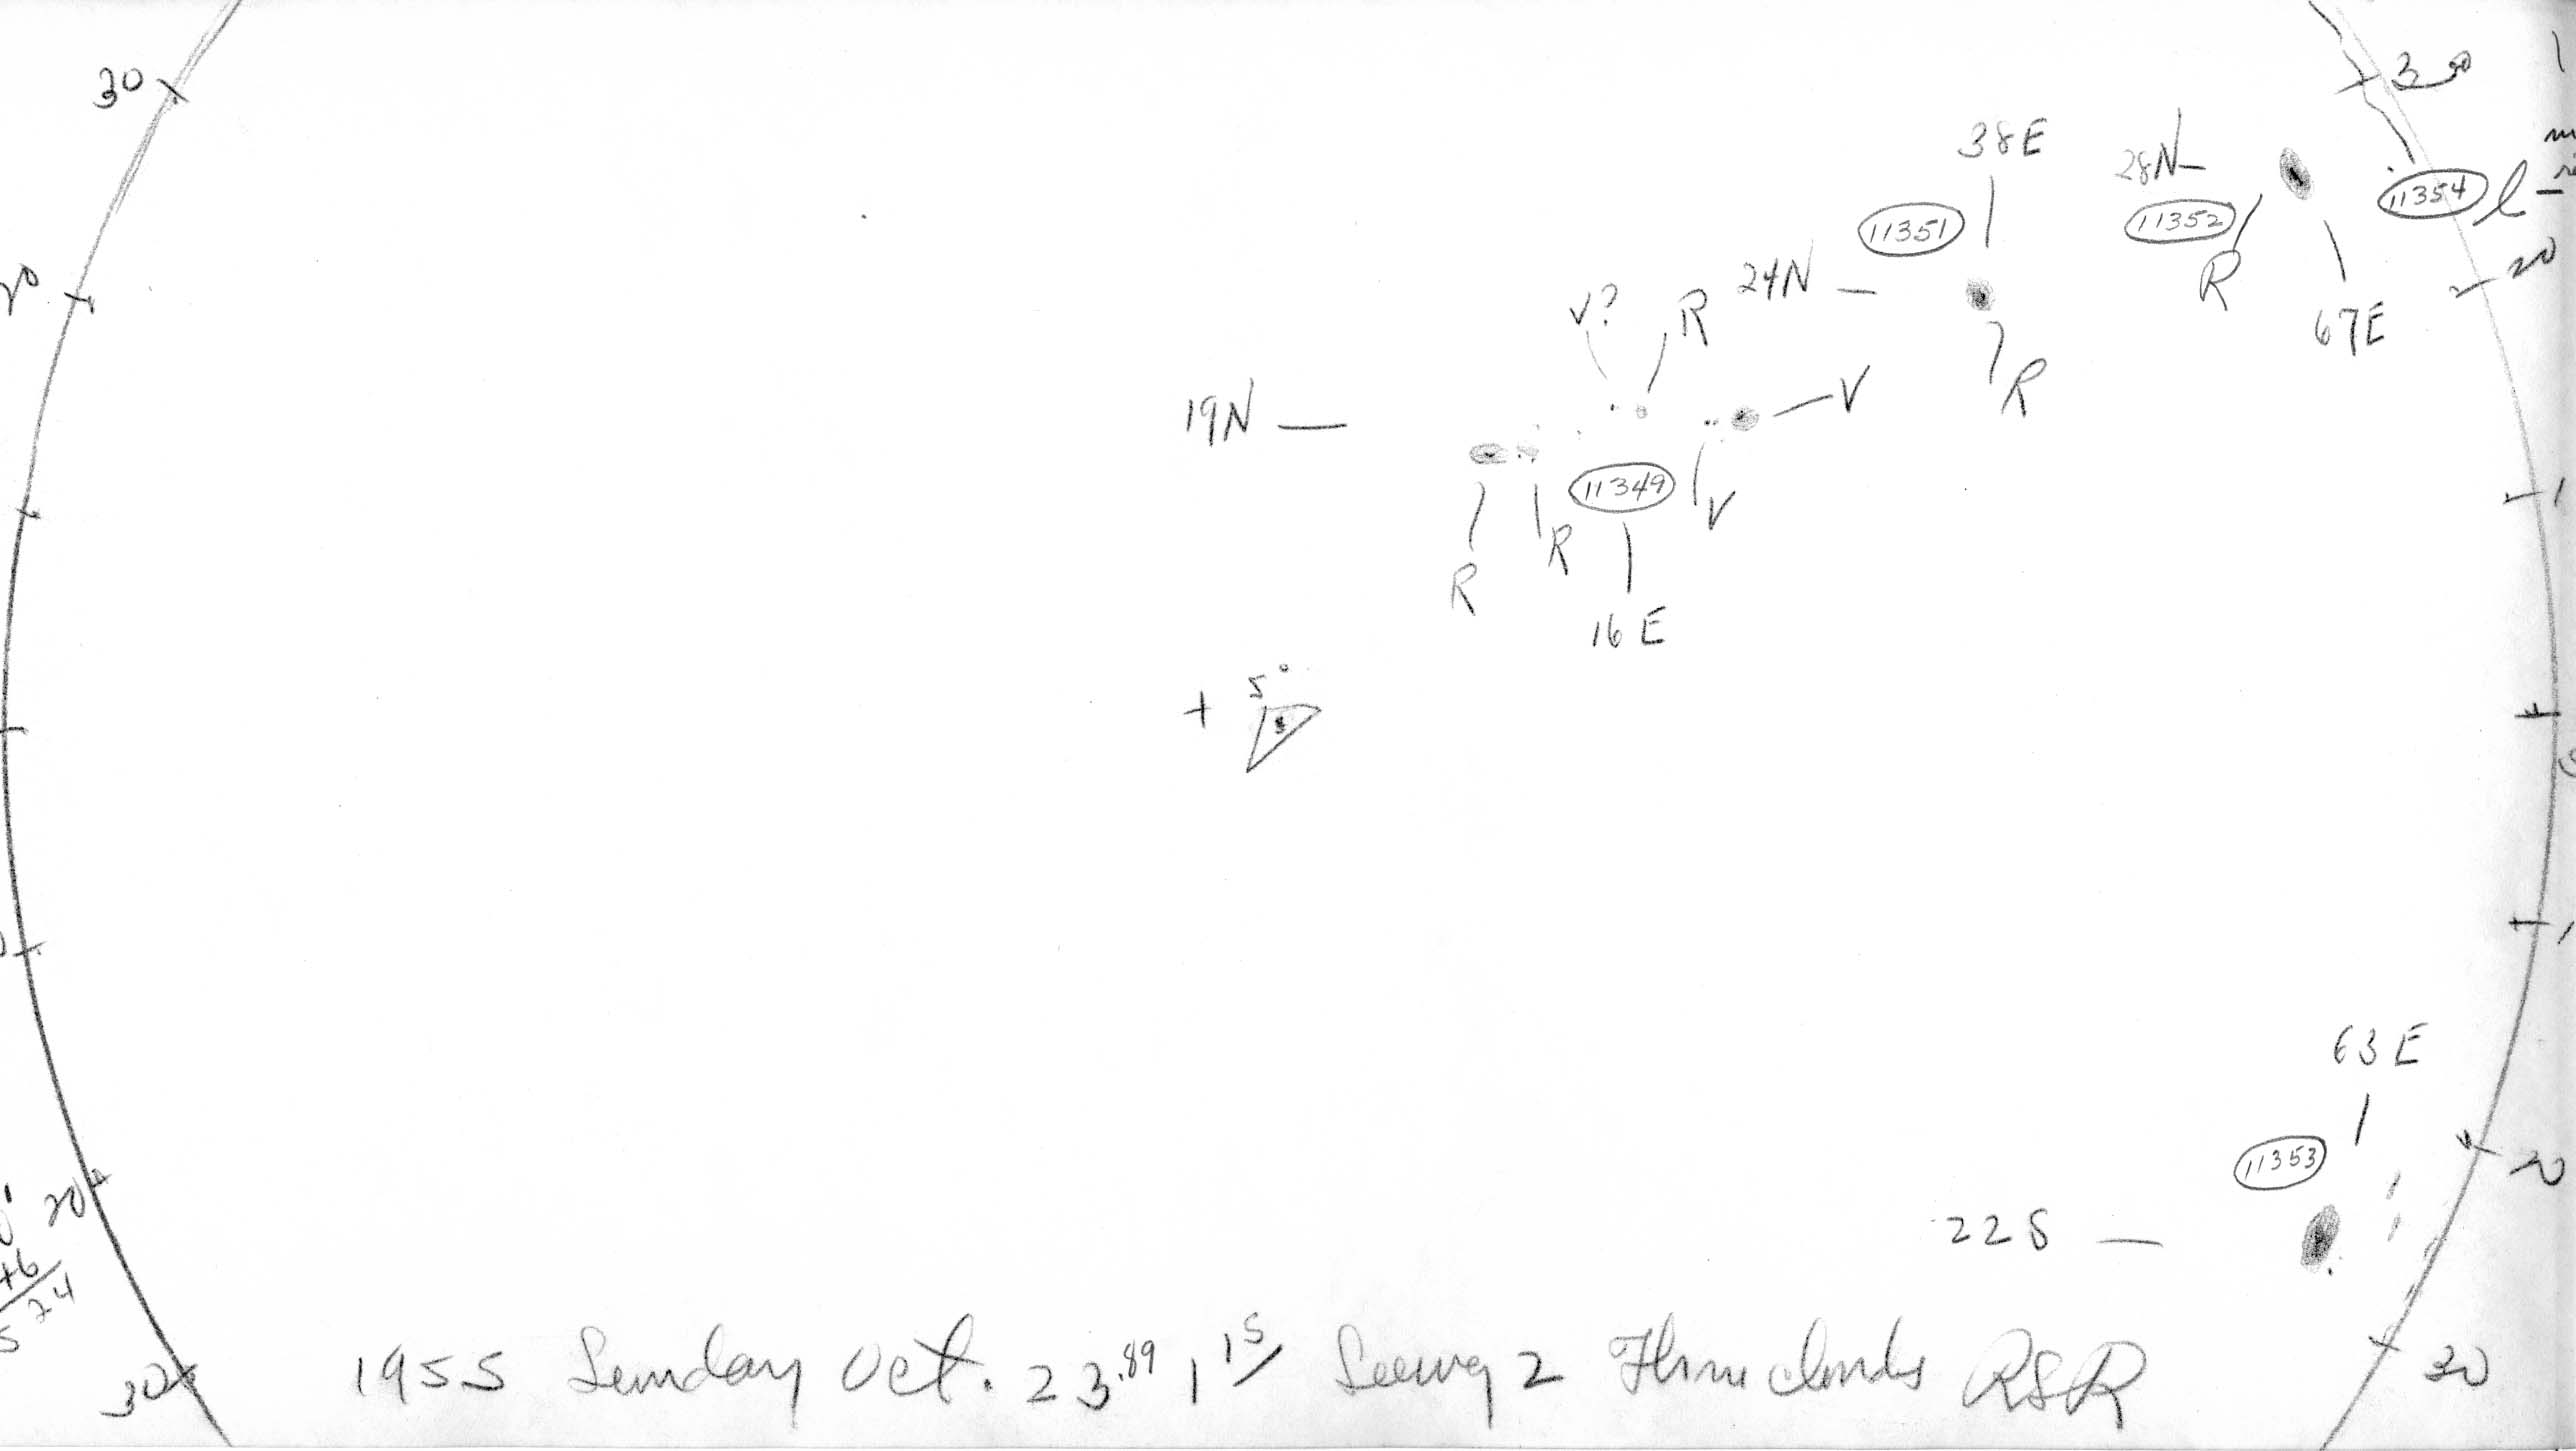 30
30
38E
28N
11351
11352
11354 l
20
20
R
24N
V?
R
67E
V
R
19N
11349
V
R
R
16E
+ 5°
63E
11353
20
20
22S
+6
24
30
30
1955 Sunday Oct. 23.89 1 15 Seeing 2 Thin clouds RSR